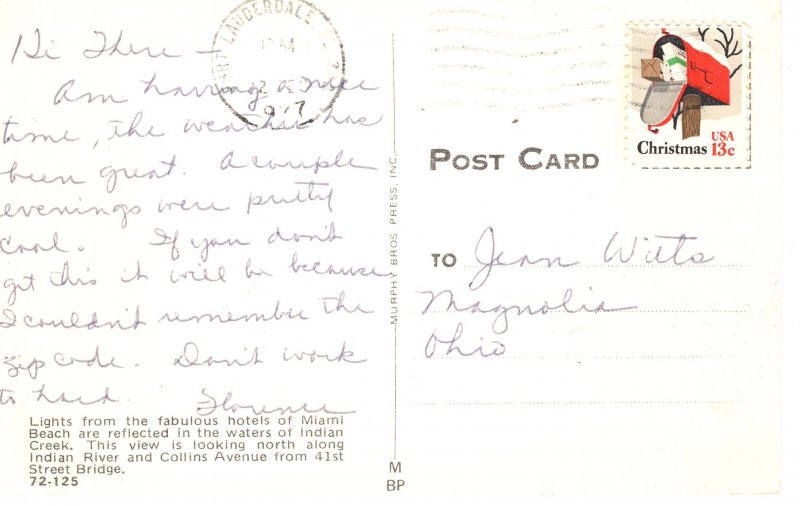 Hi There —
Am having a nice
time, the weather has
been great. A couple
evenings were pretty
cool. If you don't
get this it will be because
I couldn't remember the
zip code. Don't work
to hard.
Florence
Lights from the fabulous hotels of Miami
Beach are reflected in the waters of Indian
Creek. This view is looking north along
Indian River and Collins Avenue from 41st
Street Bridge.
72-125
LAUDERDALE
PM
MURPHY BROS PRESS, INC.
M
BP
USA
Christmas 13c
POST CARD
TO Jean Witts
Magnolia
Ohio